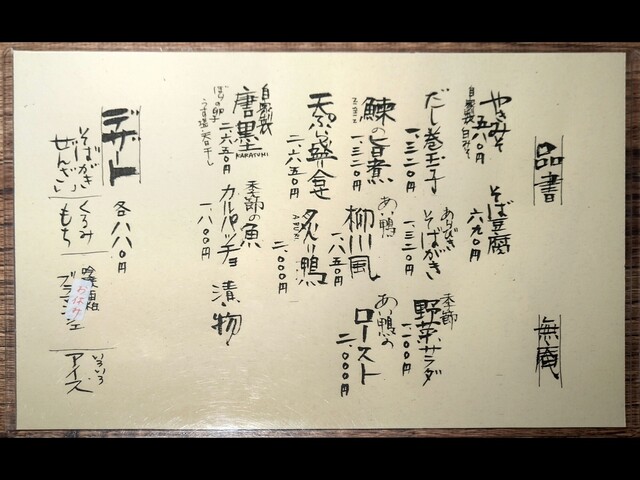 品書
無庵
やきみそ
五八〇円
自家製白みそ
そば豆腐
六九〇円
だし巻玉子
一、三二〇円
あらびき
そばがき
一、三二〇円
季節
野菜サラダ
一、一〇〇円
鰊の旨煮
一、三二〇円
あい鴨
柳川風
一、八五〇円
あい鴨の
ロースト
二、〇〇〇円
天ぷら盛合せ
二、六五〇円
炙り鴨
二、〇〇〇円
自家製
唐墨
KARASUMI
ぼらの卵
うす塩天日干し
二、六五〇円
季節の魚
カルパッチョ
一、八〇〇円
漬物
デザート
各八八〇円
そばがき
ぜんざい
くるみ
もち
ブラマンジェ
お休み
いろいろ
アイス